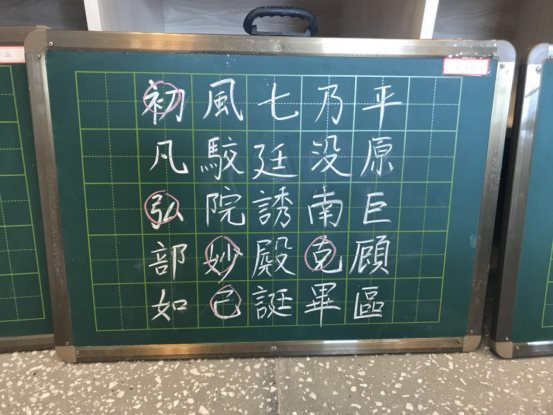 平原巨顧區
乃没南克畢
七廷誘殿誕
風駮院妙己
初凡弘部如